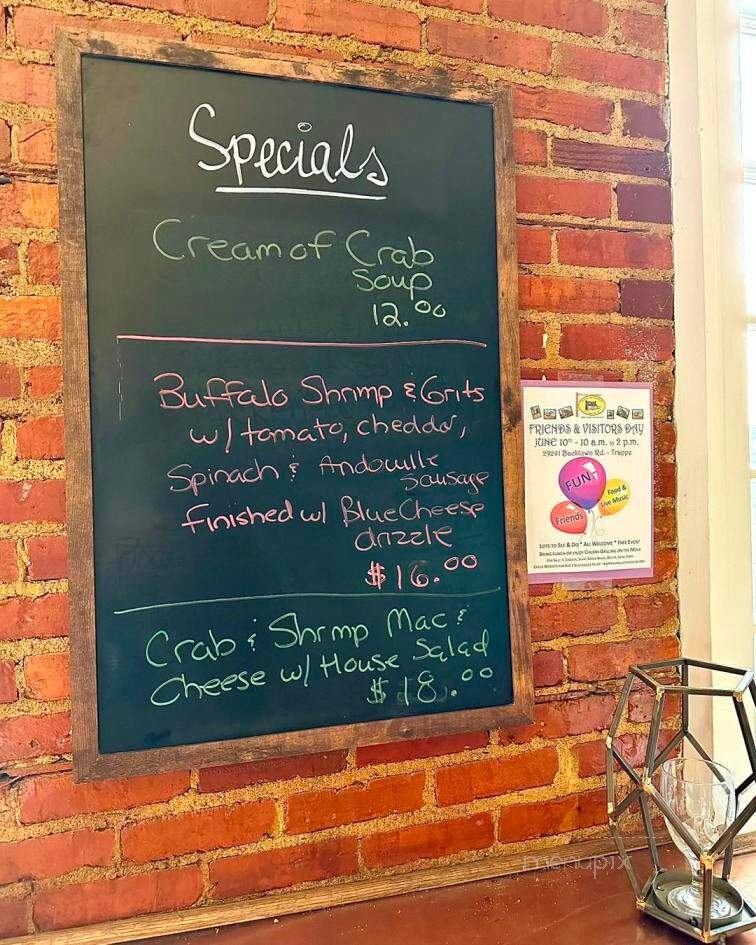 Specials
Cream of Crab
Soup
12.00
Buffalo Shrimp & Grits
w/ tomato, cheddar,
Spinach & Andouille
Sausage
finished w/ Blue Cheese
drizzle
$16.00
Crab & Shrmp Mac &
Cheese w/ House Salad
$18.00
FRIENDS & VISITORS DAY
JUNE 10TH - 10 a.m. to 2 p.m.
29241 Backtown Rd. - Trappe
FUN
Food &
Live Music
Friends
LOTS TO SEE & DO * ALL WELCOME * FREE EVENT
BRING LUNCH OR ENJOY CHUBBS GRILLING ON THE MOVE
menupix